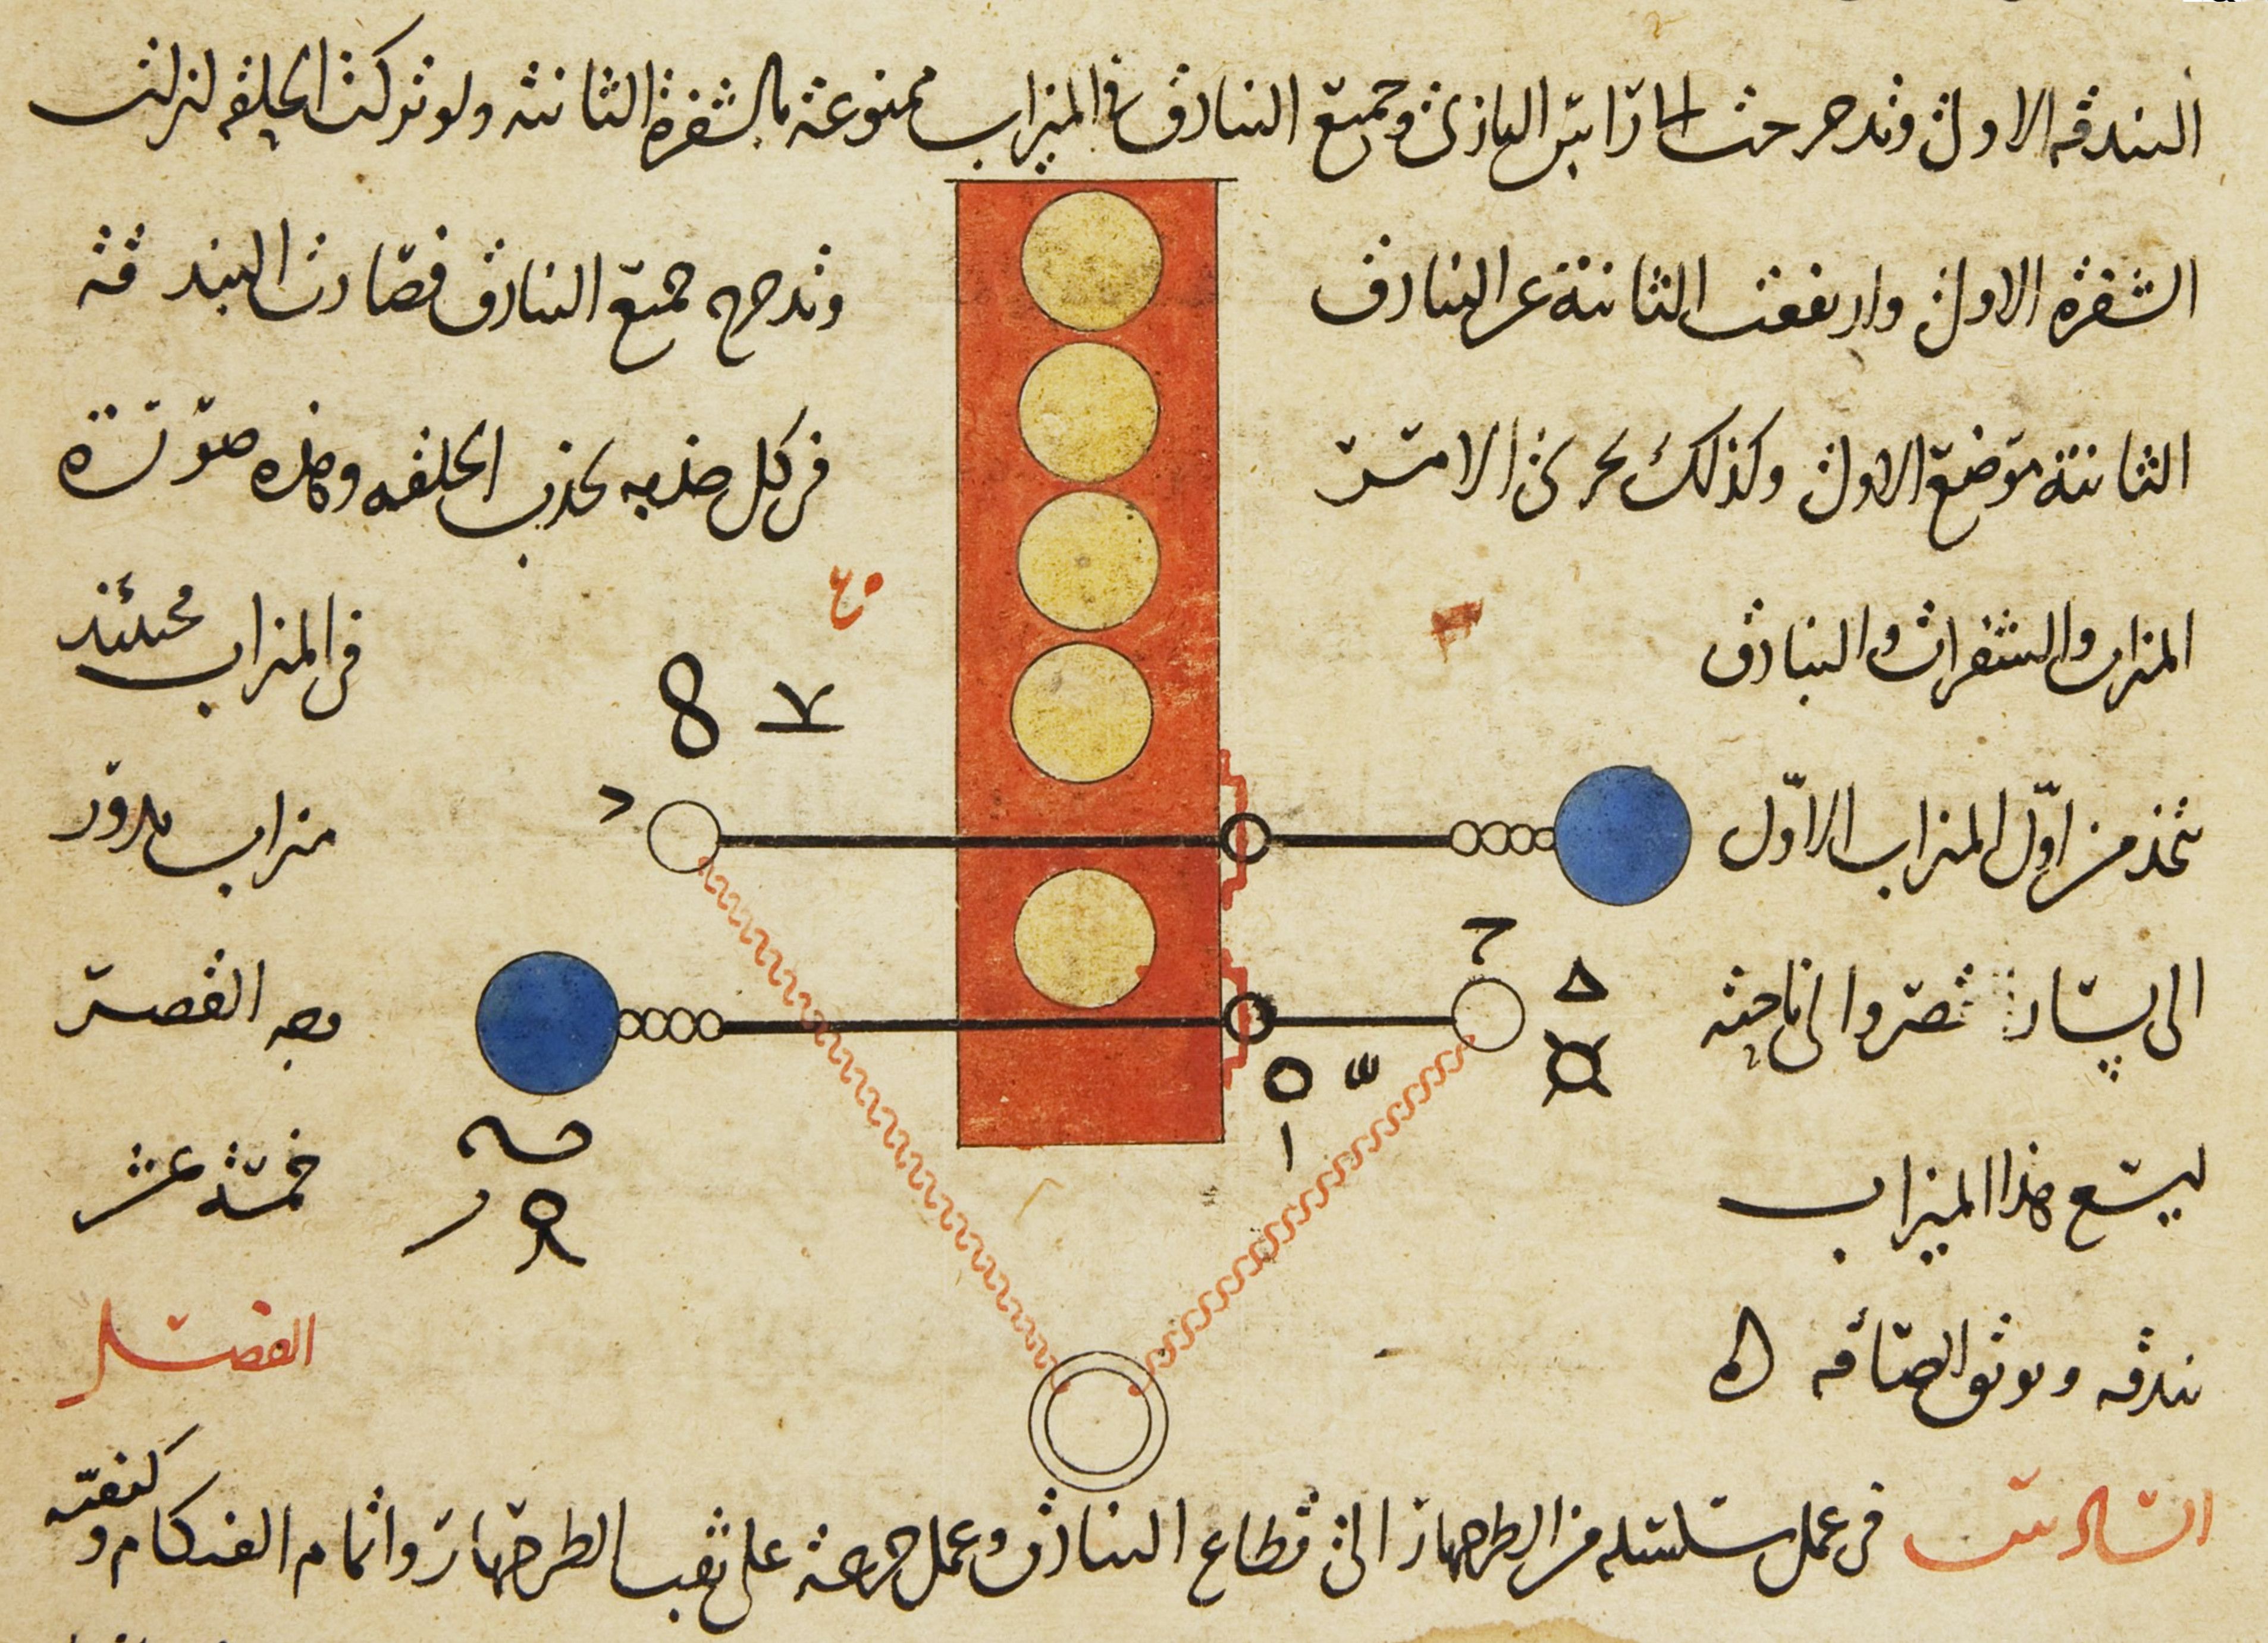 البندقه الاولى وتدحرجت الى رأس البازى وجميع البنادق فى الميزاب ممنوعة بالشفرة الثانية ولو تركت الحلقه لنزلت
الشفره الاولى وارتفعت الثانية عن البنادق وتدحرج جميع البنادق فصارت البندقه
الثانية موضع الاولى وكذلك يجرى الامر فى كل جذبه بجذب الحلقه وهذه صورة
الميزاب والشفرات والبنادق فى الميزاب
٤٥
يتخذ من اول الميزاب الاول ميزاب مدور
الى يسار ناحيه القصر
ليسع هذا الميزاب خمسة عشر
بندقه الفصل
السادس فى عمل سلسله من الطرجهار الى قطاع البنادق وعمل جزعة على ثقب الطرجهار واتمام الفنكام وكيفيه